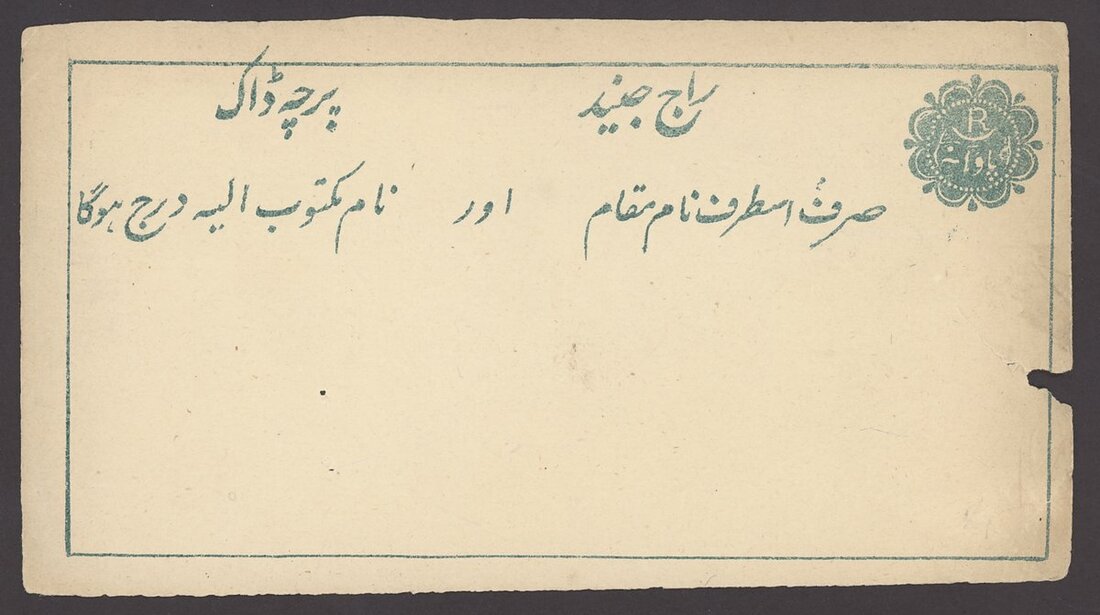 راج جیند پرچہ ڈاک
R
صرف اسطرف نام مقام اور نام مکتوب الیہ درج ہوگا